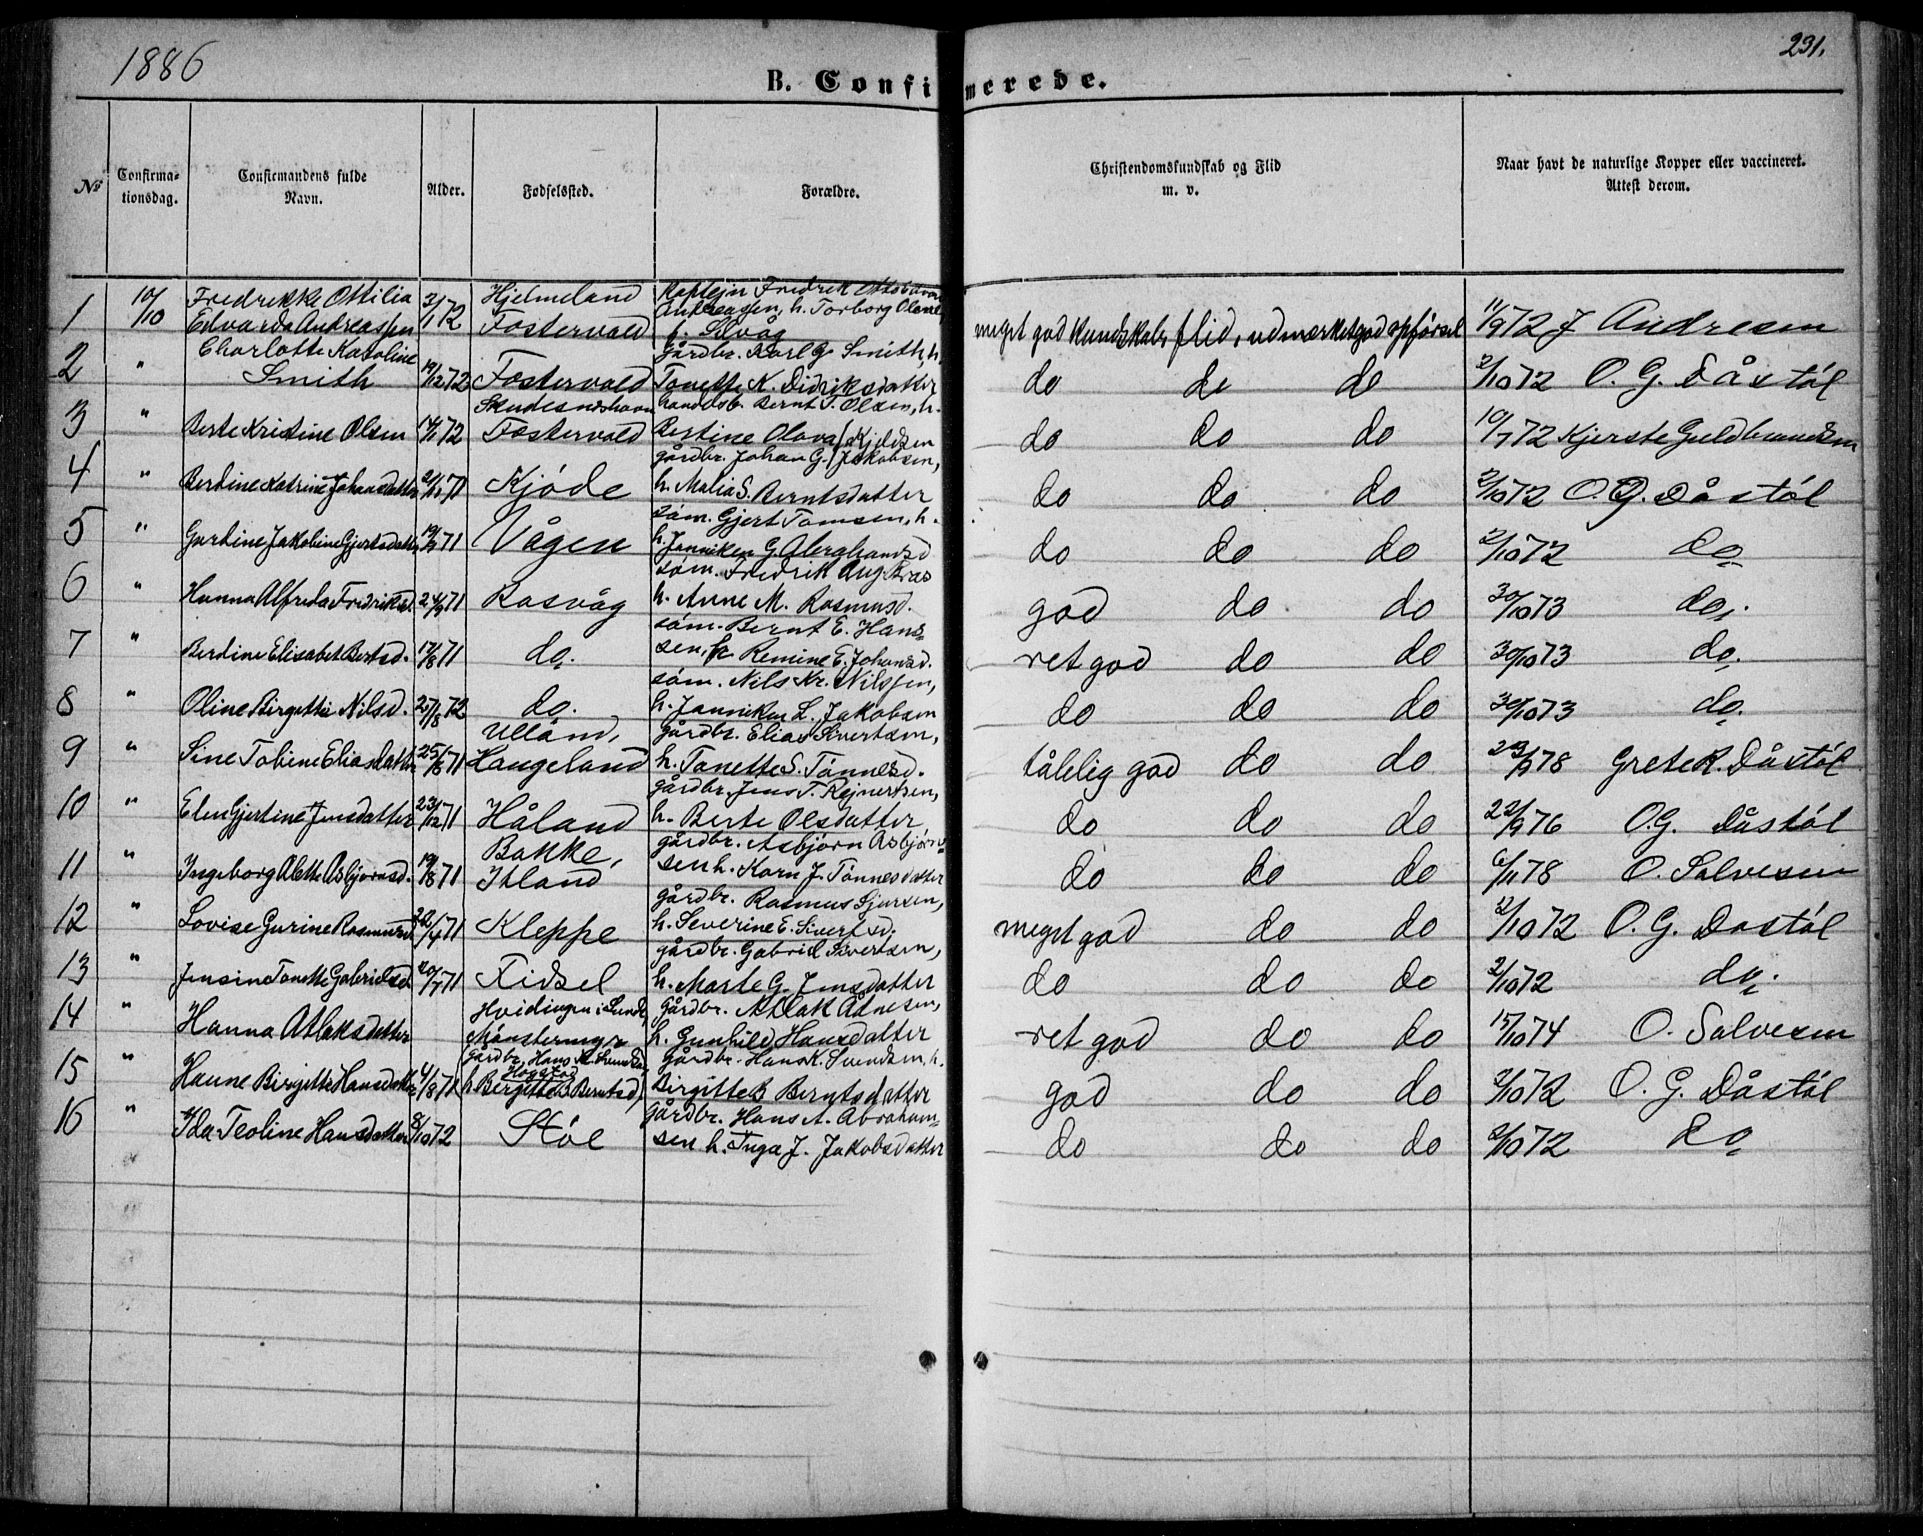 1886
231.
B. Confirmerede.
№
Confirma-
tionsdag.
Confirmandens fulde
Navn.
Alder.
Fødselssted.
Forældre.
Christendomskundskab og Flid
m. v.
Naar havt de naturlige Kopper eller vaccineret.
Attest derom.
1 10/10 Fredrikke Ottilia Hjelmeland Kaptejn Fredrik
Edvarda Andreassen 3/1 72 Fostervold Andreassen, h. Torborg
meget god kundskab, flid, udmærket god opførsel 11/9 72 J Andresen
2 " Charlotte Karoline gårdbr. Karl G Smith, h.
Smith 19/12 72 Fostervold Tonette K. Didriksdatter do do do 2/10 72 O. G. Dåstøl
3 " Skudesneshavn handelsb. Bernt T. Olsen, h.
Berte Kristine Olsen 14/1 72 Fostervold Bertine Olava Kjeldsen do do do 10/7 72 Kjerste Guldbrandsen
4 " gårdbr. Johan G. Jakobsen,
Berdine Katrine Johansdatter 71 Kjøde h. Malia S. Berntsdatter do do do 2/10 72 O. G. Dåstøl
5 " søm. Gjert Tomsen, h.
Gurdine Jakobine Gjertsdatter 71 Vågen h. Janniken G do do do 2/10 72 do
6 " søm. Fredrik Aug.
Hanna Alfreda Fredriksd. 71 Rasvåg h. Anne M. Rasmusd. god do do 30/10 73 do.
7 " søm. Bernt E. Hans-
Berdine Elisabet Berntsd. 17/8 71 do. sen, h Remine E. Johansd. ret god do do 30/10 73 do.
8 " søm. Nils Kr. Nilssen,
Oline Birgitte Nilsd. 27/8 72 do. h. Janniken L. Jakobsen do do do 30/10 73 do.
9 " Ulland, gårdbr. Elias Sivertsen,
Sine Tobine Eliasdatter 71 Haugeland h. Tonette S. Tønnesd. tålelig god do do 78 Grete K. Dåstøl
10 " gårdbr. Jens T. Rejnertsen,
Elen Gjertine Jensdatter 23/12 71 Håland h. Berte Olsdatter do do do 22/9 76 O.G. Dåstøl
11 " Bakke, gårdbr. Asbjørn Asbjørn-
Ingeborg Alette Asbjørnsd. 19/8 71 Itland sen h. Karn J. Tønnesdatter do do do 6/11 78 O. Salvesen
12 " gårdbr. Rasmus Sjursen,
Lovise Gurine Rasmusd. 22/4 71 Kleppe h. Severine E. Sivertsd. meget god do do 2/10 72 O. G. Dåstøl
13 " gårdbr. Gabriel Sivertsen,
Jensine Tonette Gabrielsd. 71 Fidsel h. Marte G. Jensdatter do do do 2/10 72 do.
14 " Hvidingen i gårdbr. Atlak Ådnesen,
Hanna Atlaksdatter h. Gunhild Hansdatter ret god do do 15/10 74 O. Salvesen
15 " gårdbr. Hans K. Svendsen, gårdbr. Hans K. Svendsen, h.
Høgstad
Hanne Birgitte Hansdatter 4/8 71 h. Bergitte B Berntsd, Birgitte B Berntsdatter god do do 2/10 72 O. G. Dåstøl
16 " gårdbr. Hans A. Abraham-
Ida Teoline Hansdatter 8/10 72 Støl sen h. Inga J. Jakobsdatter do do do 2/10 72 do